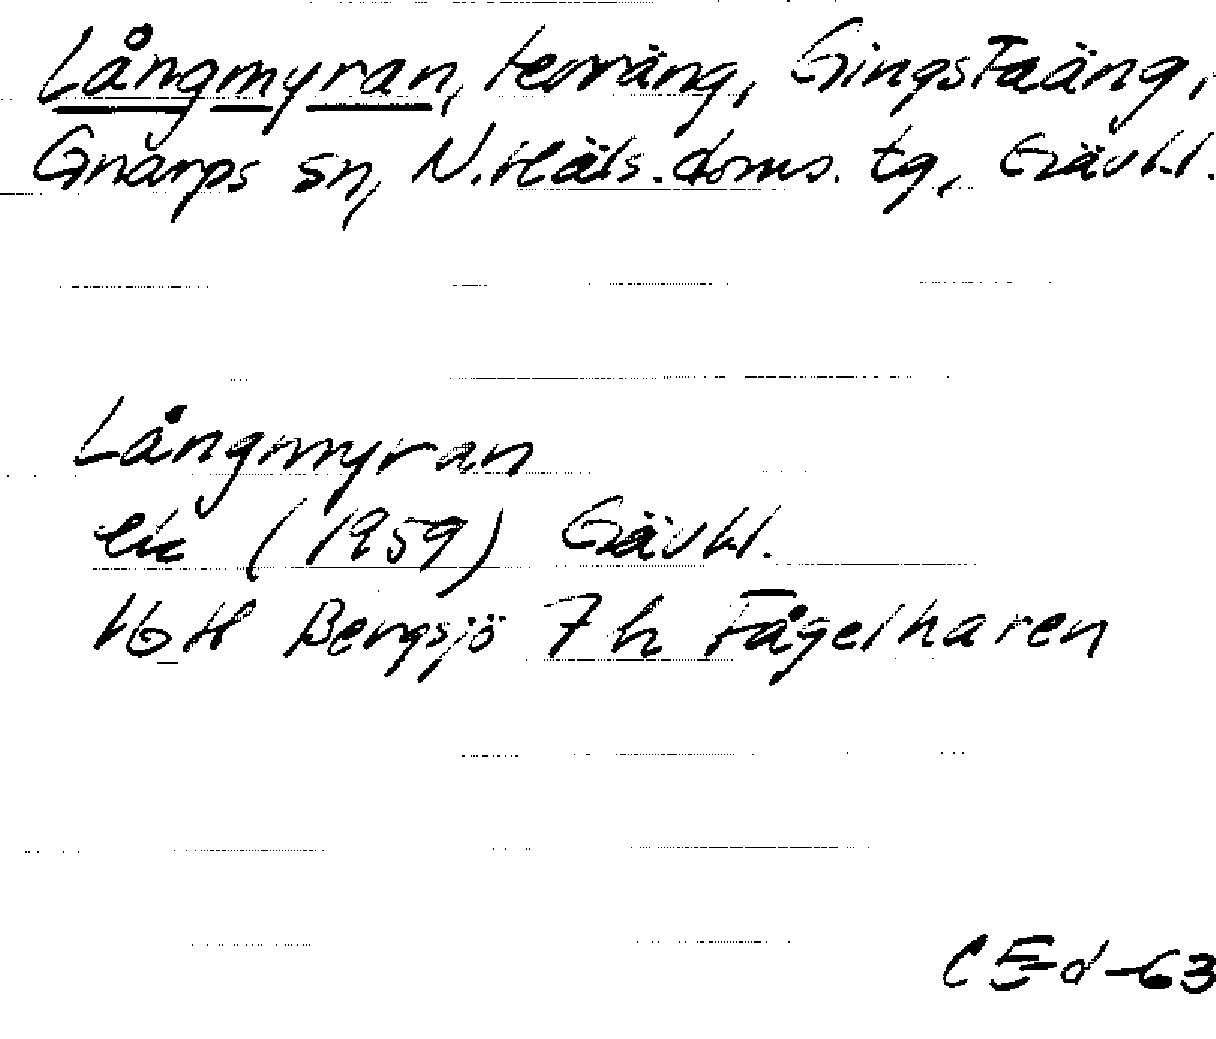 Långmyran, terräng, Gingstaäng,
Gnarps sn, N. Häls. doms. tg, Gävl.l.
Långmyran
ek (1959) Gävl.l.
16 H Bergsjö 7 h Fågelharen
CEd-63